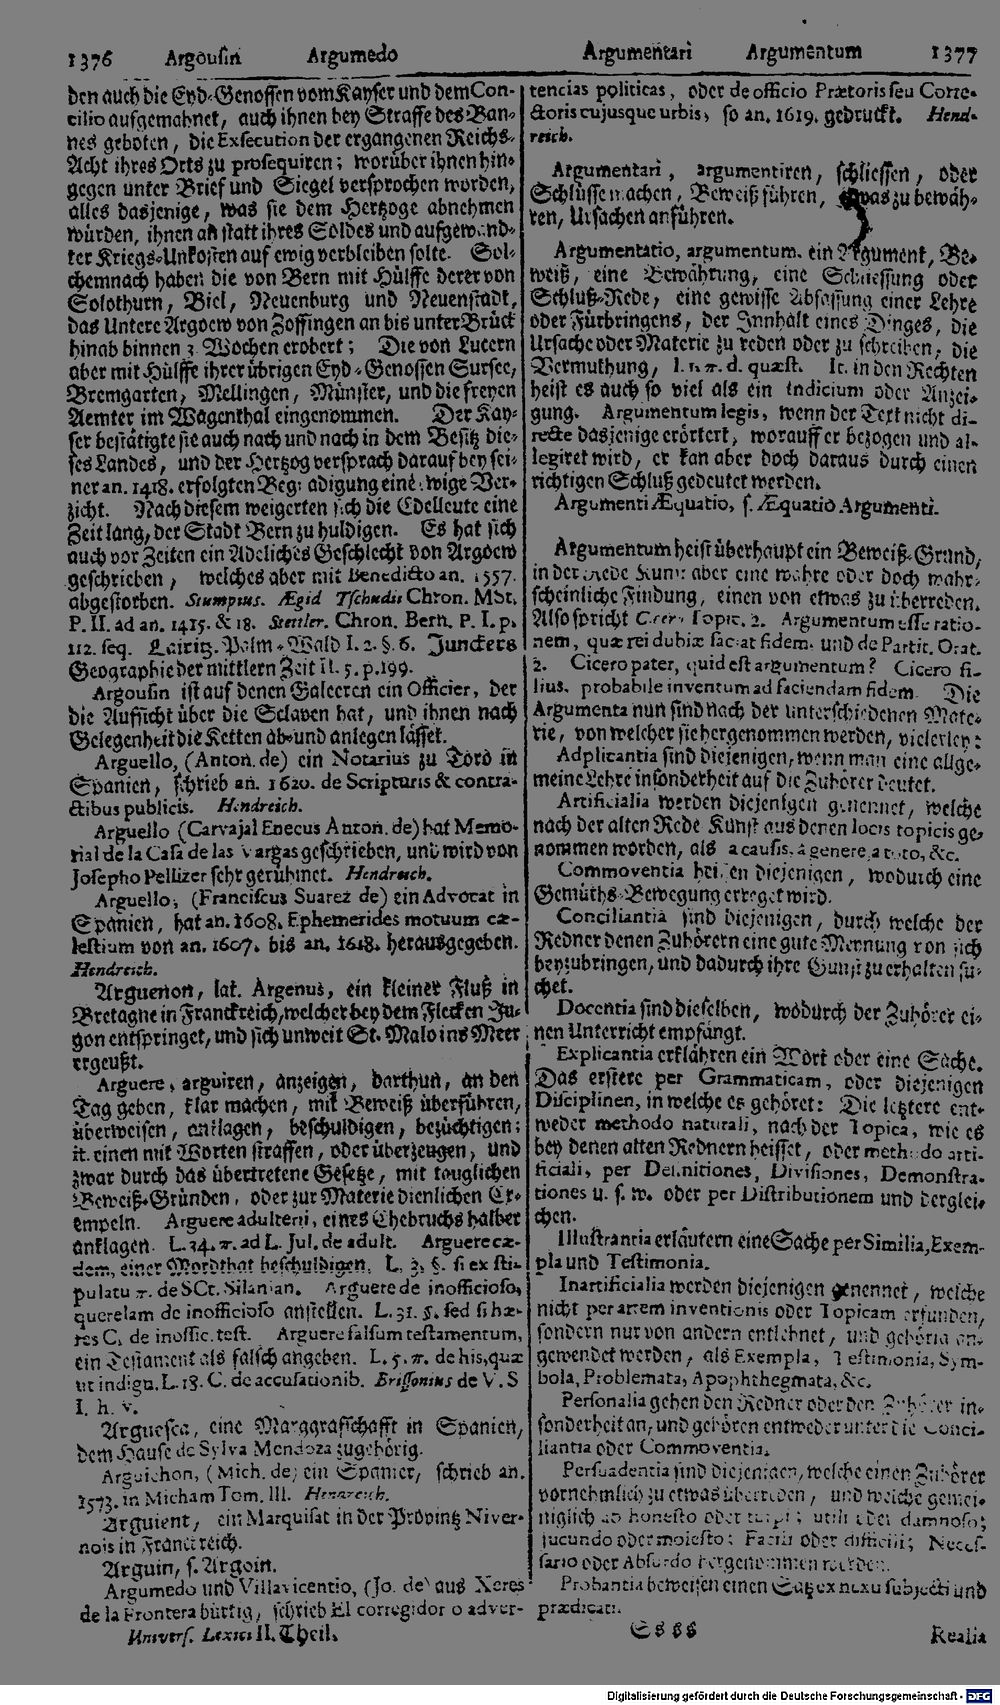 1376 Argousin Argumedo
Argumentari Argumentum 1377
den auch die Eyd-Genossen vom Kayser und dem Con-
cilio aufgemahnet, auch ihnen bey Straffe des Ban-
nes geboten, die Execution der ergangenen Reichs-
Acht ihres Orts zu prosequiren; worüber ihnen hin-
gegen unter Brief und Siegel versprochen worden,
alles dasjenige, was sie dem Hertzoge abnehmen
würden, ihnen an statt ihres Soldes und aufgewand-
ter Kriegs-Unkosten auf ewig verbleiben solte. Sol-
chemnach haben die von Bern mit Hülffe derer von
Solothurn, Biel, Neuenburg und Neuenstadt,
das Untere Argoew von Zoffingen an bis unter Brück
hinab binnen 3. Wochen erobert; Die von Lucern
aber mit Hülffe ihrer übrigen Eyd-Genossen Sursee,
Bremgarten, Mellingen, Münster, und die freyen
Aemter im Wagenthal eingenommen. Der Kay-
ser bestätigte sie auch nach und nach in dem Besitz die-
ses Landes, und der Hertzog versprach darauf bey sei-
ner an. 1418. erfolgten Begnadigung eine ewige Ver-
zicht. Nach diesem weigerten sich die Edelleute eine
Zeit lang, der Stadt Bern zu huldigen. Es hat sich
auch vor Zeiten ein Adeliches Geschlecht von Argoew
geschrieben, welches aber mit Benedicto an. 1557.
abgestorben. Stumpius. Ægid Tschudii Chron. MSt.
P. II. ad an. 1415. & 18. Stettler. Chron. Bern. P. I. p.
112. seq. Lairitz. Palm-Wald I. 2. §. 6. Junckers
Geographie der mittlern Zeit II. 5. p. 199.
Argousin ist auf denen Galeeren ein Officier, der
die Aufsicht über die Sclaven hat, und ihnen nach
Gelegenheit die Ketten ab- und anlegen lässet.
Arguello, (Anton. de) ein Notarius zu Toro in
Spanien, schrieb an. 1620. de Scripturis & contra-
ctibus publicis. Hendreich.
Arguello (Carvajal Enecus Anton. de) hat Memo-
rial de la Casa de las Vargas geschrieben, und wird von
Josepho Pellizer sehr gerühmet. Hendreich.
Arguello, (Franciscus Suarez de) ein Advocat in
Spanien, hat an. 1608. Ephemerides motuum cæ-
lestium von an. 1607. bis an. 1618. herausgegeben.
Hendreich.
Arguenon, lat. Argenus, ein kleiner Fluß in
Bretagne in Franckreich, welcher bey dem Flecken Ju-
gon entspringet, und sich unweit St. Malo ins Meer
ergeußt.
Arguere, arguiren, anzeigen, darthun, an den
Tag geben, klar machen, mit Beweiß überführen,
überweisen, anklagen, beschuldigen, bezüchtigen;
it. einen mit Worten straffen, oder überzeugen, und
zwar durch das übertretene Gesetze, mit tauglichen
Beweiß-Gründen, oder zur Materie dienlichen Ex-
empeln. Arguere adulterii, eines Ehebruchs halber
anklagen. L. 34. π. ad L. Jul. de adult. Arguere cæ-
dem, einer Mordthat beschuldigen. L. 3. §. si ex sti-
pulatu π. de SCt. Silanian. Arguete de inofficioso,
querelam de inofficioso anstellen. L. 31. §. sed si hæ-
res C. de inoffic. test. Arguere falsum testamentum,
ein Testament als falsch angeben. L. 5. π. de his, quæ
ut indign. L. 18. C. de accusationib. Brissonius de V. S
I. h. v.
Arguesca, eine Marggrafschafft in Spanien,
dem Hause de Sylva Mendoza zugehörig.
Arguichon, (Mich. de) ein Spanier, schrieb an.
1573. in Micham Tom. III. Hendreich.
Arguient, ein Marquisat in der Provintz Niver-
nois in Franckreich.
Arguin, s. Argoin.
Argumedo und Villavicentio, (Jo. de) aus Xeres
de la Frontera bürtig, schrieb El corregidor o adver-
Univers. Lexici II. Theil.
tencias politicas, oder de officio Prætoris seu Corre-
ctoris cujusque urbis, so an. 1619. gedruckt. Hend-
reich.
Argumentari, argumentiren, schliessen, oder
Schlüsse machen, Beweiß führen, etwas zu bewäh-
ren, Ursachen anführen.
Argumentatio, argumentum. ein Argument, Be-
weiß, eine Bewährung, eine Schliessung oder
Schluß-Rede, eine gewisse Abfassung einer Lehre
oder Fürbringens, der Innhalt eines Dinges, die
Ursache oder Materie zu reden oder zu schreiben, die
Vermuthung, l. 1. π. d. quæst. It. in den Rechten
heist es auch so viel als ein Indicium oder Anzei-
gung. Argumentum legis, wenn der Text nicht di-
recte dasjenige erörtert, worauff er bezogen und al-
legiret wird, er kan aber doch daraus durch einen
richtigen Schluß gedeutet werden.
Argumenti Æquatio, s. Æquatio Argumenti.
Argumentum heist überhaupt ein Beweiß-Grund,
in der Rede Kunst aber eine wahre oder doch wahr-
scheinliche Findung, einen von etwas zu überreden.
Also spricht Cicer. Topic. 2. Argumentum esse ratio-
nem, quæ rei dubiæ faciat fidem. und de Partit. Orat.
2. Cicero pater, quid est argumentum? Cicero fi-
lius. probabile inventum ad faciendam fidem. Die
Argumenta nun sind nach der unterschiedenen Mate-
rie, von welcher sie hergenommen werden, vielerley:
Adplicantia sind diejenigen, wenn man eine allge-
meine Lehre insonderheit auf die Zuhörer deutet.
Artificialia werden diejenigen genennet, welche
nach der alten Rede Kunst aus denen locis topicis ge-
nommen worden, als a causis, a genere, a toto, &c.
Commoventia heissen diejenigen, wodurch eine
Gemüths-Bewegung erreget wird.
Conciliantia sind diejenigen, durch welche der
Redner denen Zuhörern eine gute Meynung von sich
beyzubringen, und dadurch ihre Gunst zu erhalten su-
chet.
Docentia sind dieselben, wodurch der Zuhörer ei-
nen Unterricht empfängt.
Explicantia erklähren ein Wort oder eine Sache.
Das erstere per Grammaticam, oder diejenigen
Disciplinen, in welche es gehöret: Die letztere ent-
weder methodo naturali, nach der Topica, wie es
bey denen alten Rednern heisset, oder methodo arti-
ficiali, per Definitiones, Divisiones, Demonstra-
tiones u. s. w. oder per Distributionem und derglei-
chen.
Illustrantia erläutern eine Sache per Similia, Exem-
pla und Testimonia.
Inartificialia werden diejenigen genennet, welche
nicht per artem inventionis oder Topicam erfunden,
sondern nur von andern entlehnet, und gehörig an-
gewendet werden, als Exempla, Testimonia, Sym-
bola, Problemata, Apophthegmata, &c.
Personalia gehen den Redner oder den Zuhörer in-
sonderheit an, und gehören entweder unter die Conci-
liantia oder Commoventia.
Persuadentia sind diejenigen, welche einen Zuhörer
vornehmlich zu etwas überreden, und welche gemei-
niglich ab honesto oder turpi; utili oder damnoso;
jucundo oder molesto; Facili oder difficili; Neces-
sario oder Absurdo hergenommen werden.
Probantia beweisen einen Satz ex nexu subjecti und
prædicati.
Ssss
Realia
Digitalisierung gefördert durch die Deutsche Forschungsgemeinschaft - DFG